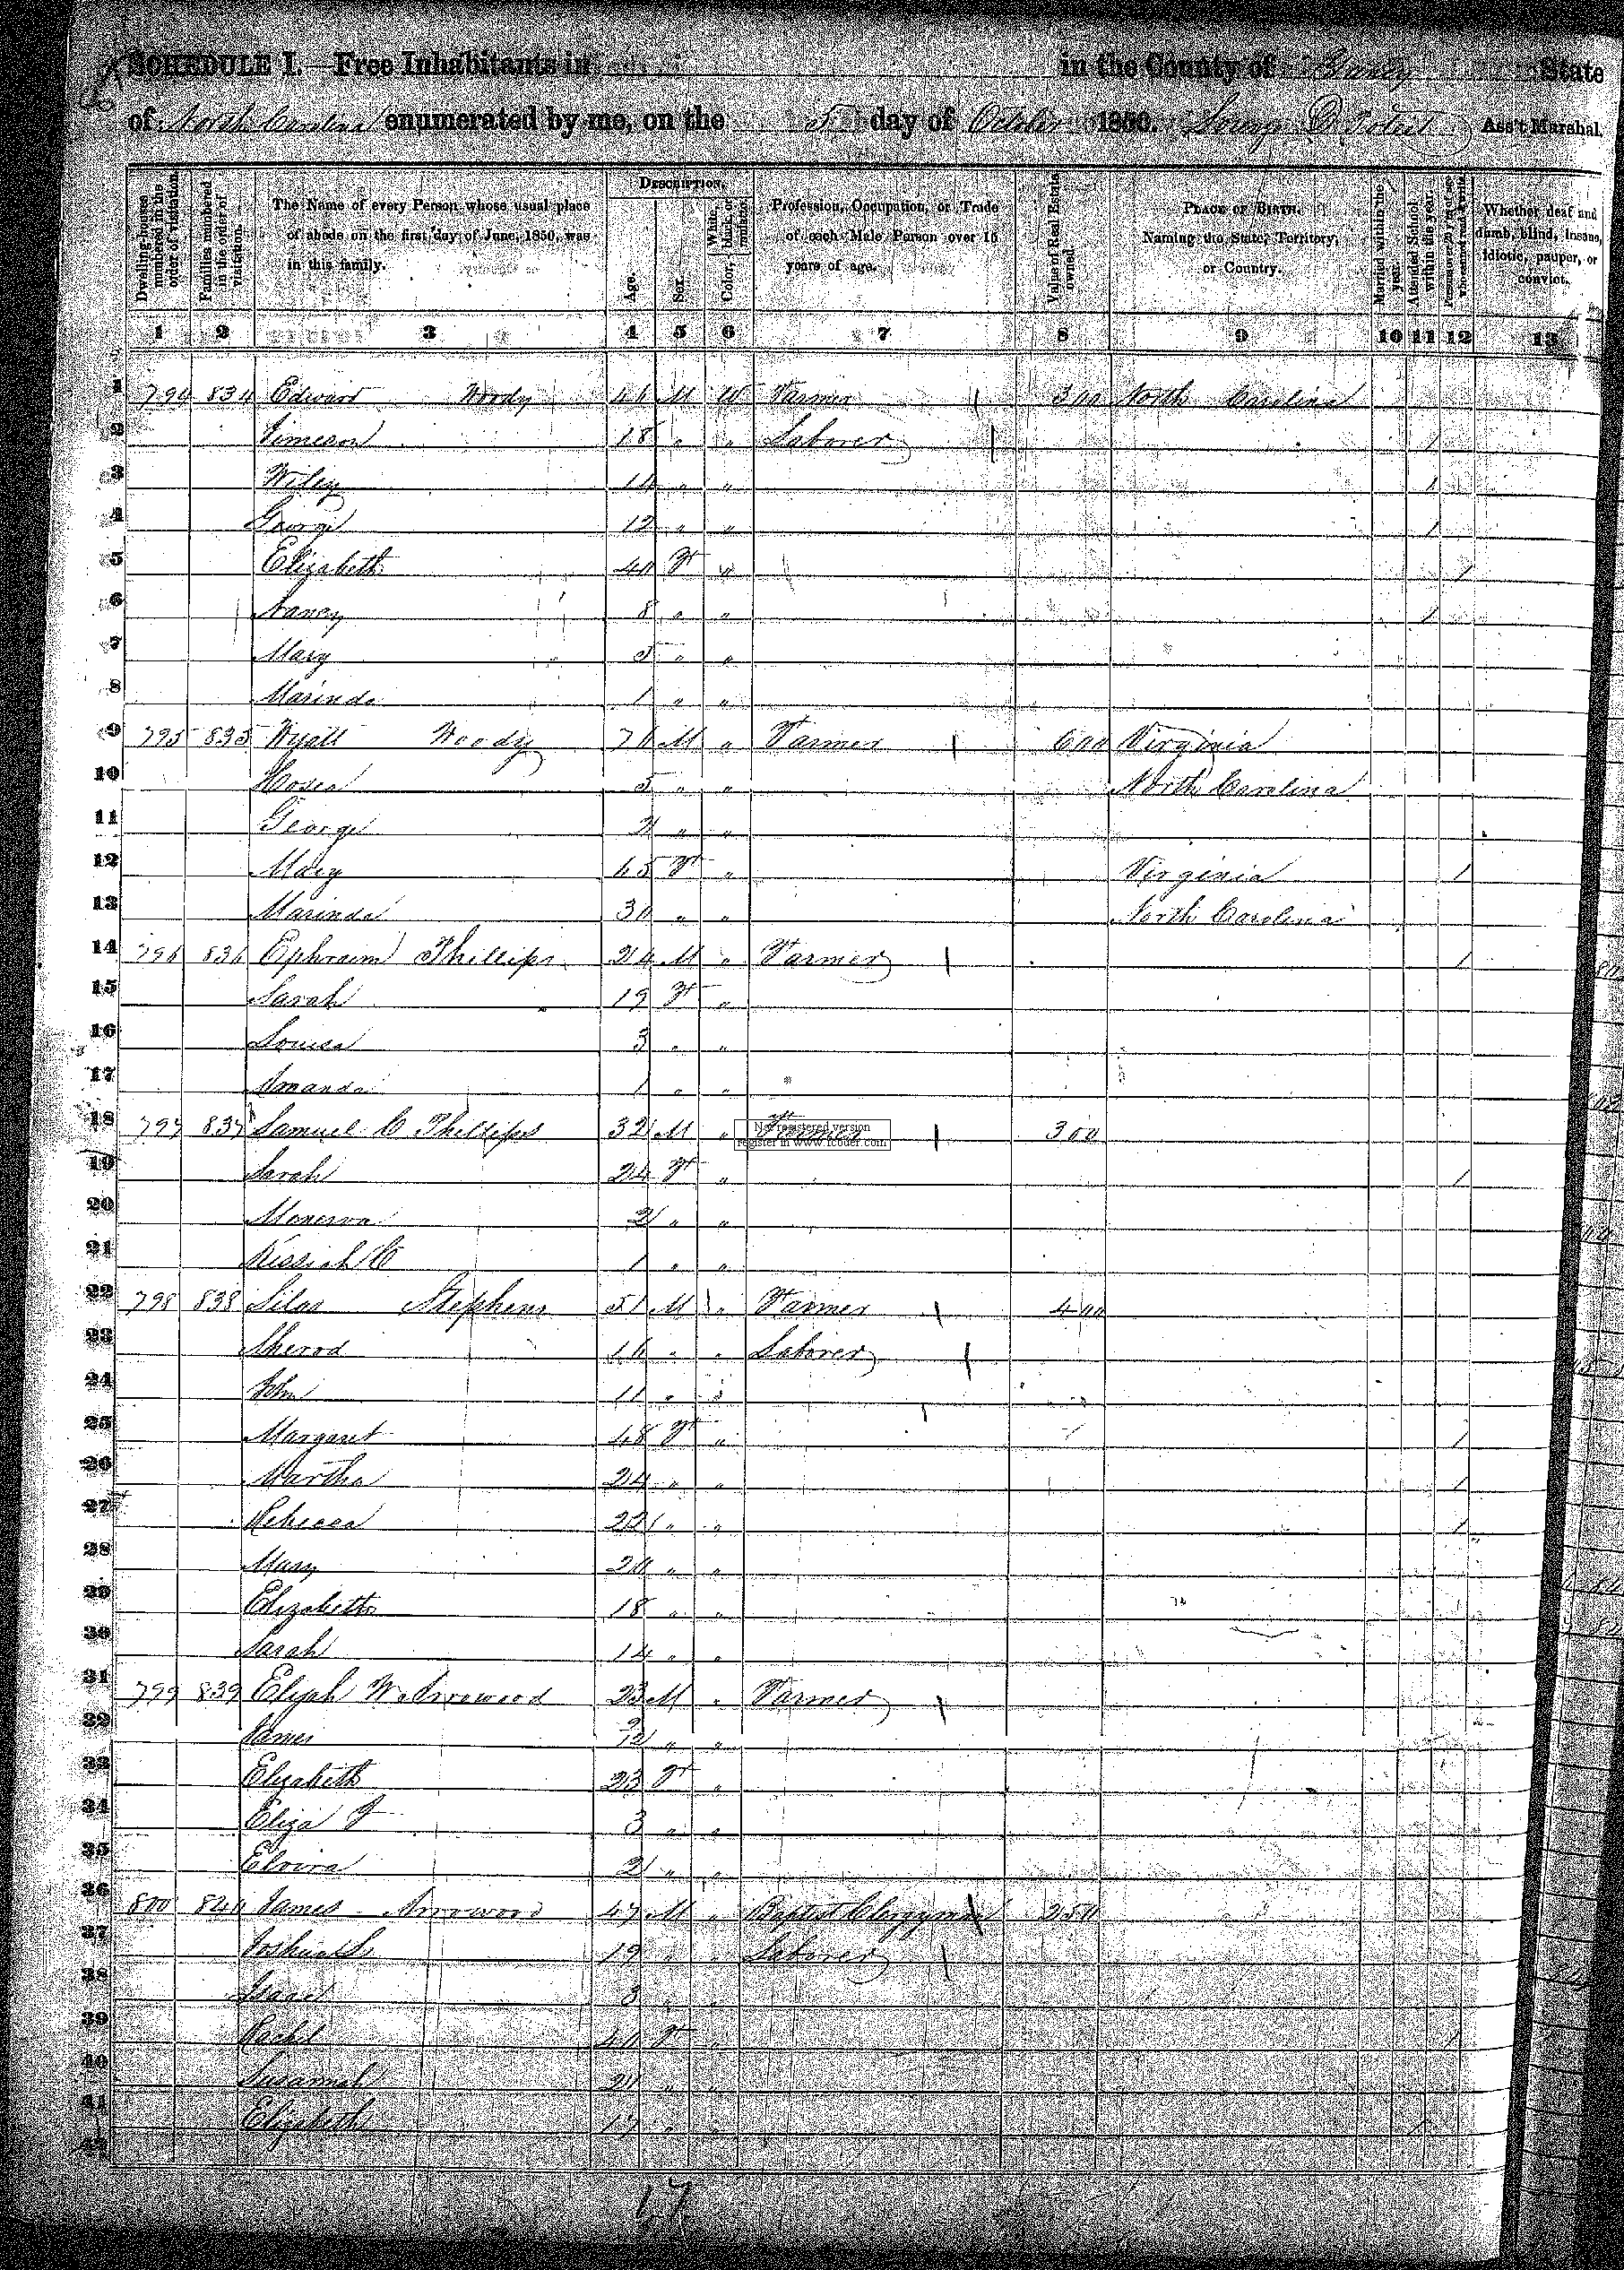 SCHEDULE I.—Free Inhabitants in in the County of Yancy State
of North Carolina enumerated by me, on the 5 day of October 1850. Ass't Marshal.
Dwelling-houses numbered in the order of visitation.
Families numbered in the order of visitation.
The Name of every Person whose usual place of abode on the first day of June, 1850, was in this family.
DESCRIPTION.
Age.
Sex.
Color, White, black, or mulatto.
Profession, Occupation, or Trade of each Male Person over 15 years of age.
Value of Real Estate owned.
PLACE OF BIRTH. Naming the State, Territory, or Country.
Married within the year.
Attended School within the year.
Persons over 20 y'rs of age who cannot read & write.
Whether deaf and dumb, blind, insane, idiotic, pauper, or convict.
1 2 3 4 5 6 7 8 9 10 11 12 13
1 794 834 Edward Woody 46 M W Farmer 300 North Carolina
2 Jimeson 18 " " Laborer 1
3 Wiley 14 " " 1
4 George 12 " " 1
5 Elizabeth 40 F " 1
6 Nancy 8 " " 1
7 Mary 5 " "
8 Marinda 1 " "
9 795 835 Wyatt Woody 70 M " Farmer 600 Virginia
10 Hosea 5 " " North Carolina
11 George 2 " "
12 Mary 65 F " Virginia 1
13 Marinda 30 " " North Carolina
14 796 836 Ephraim Phillips 24 M " Farmer 1
15 Sarah 19 F "
16 Louisa 3 " "
17 Amanda 1 " "
18 797 837 Samuel C Phillips 32 M " Farmer 300
Not registered version
register in www.fcoder.com
19 Sarah 24 F " 1
20 Menerva 2 " "
21 Kissiah 1 " "
22 798 838 Silas Stephens 51 M " Farmer 400
23 Sherod 16 " " Laborer
24 John 11 " "
25 Margaret 48 F " 1
26 Martha 24 " " 1
27 Rebecca 22 " " 1
28 Mary 20 " "
29 Elizabeth 18 " "
30 Sarah 14 " "
31 799 839 Elijah W Arrowood 23 M " Farmer
32 James 9/12 " "
33 Elizabeth 23 F "
34 Eliza J 3 " "
35 Elvira 2 " "
36 800 840 James Arrowood 47 M " Baptist Clergyman 250
37 Joshua 19 " " Laborer
38 Isaac 3 "
39 Rachel 40 F 1
40 Susannah 20 "
41 Elizabeth 17 " 1
42
17